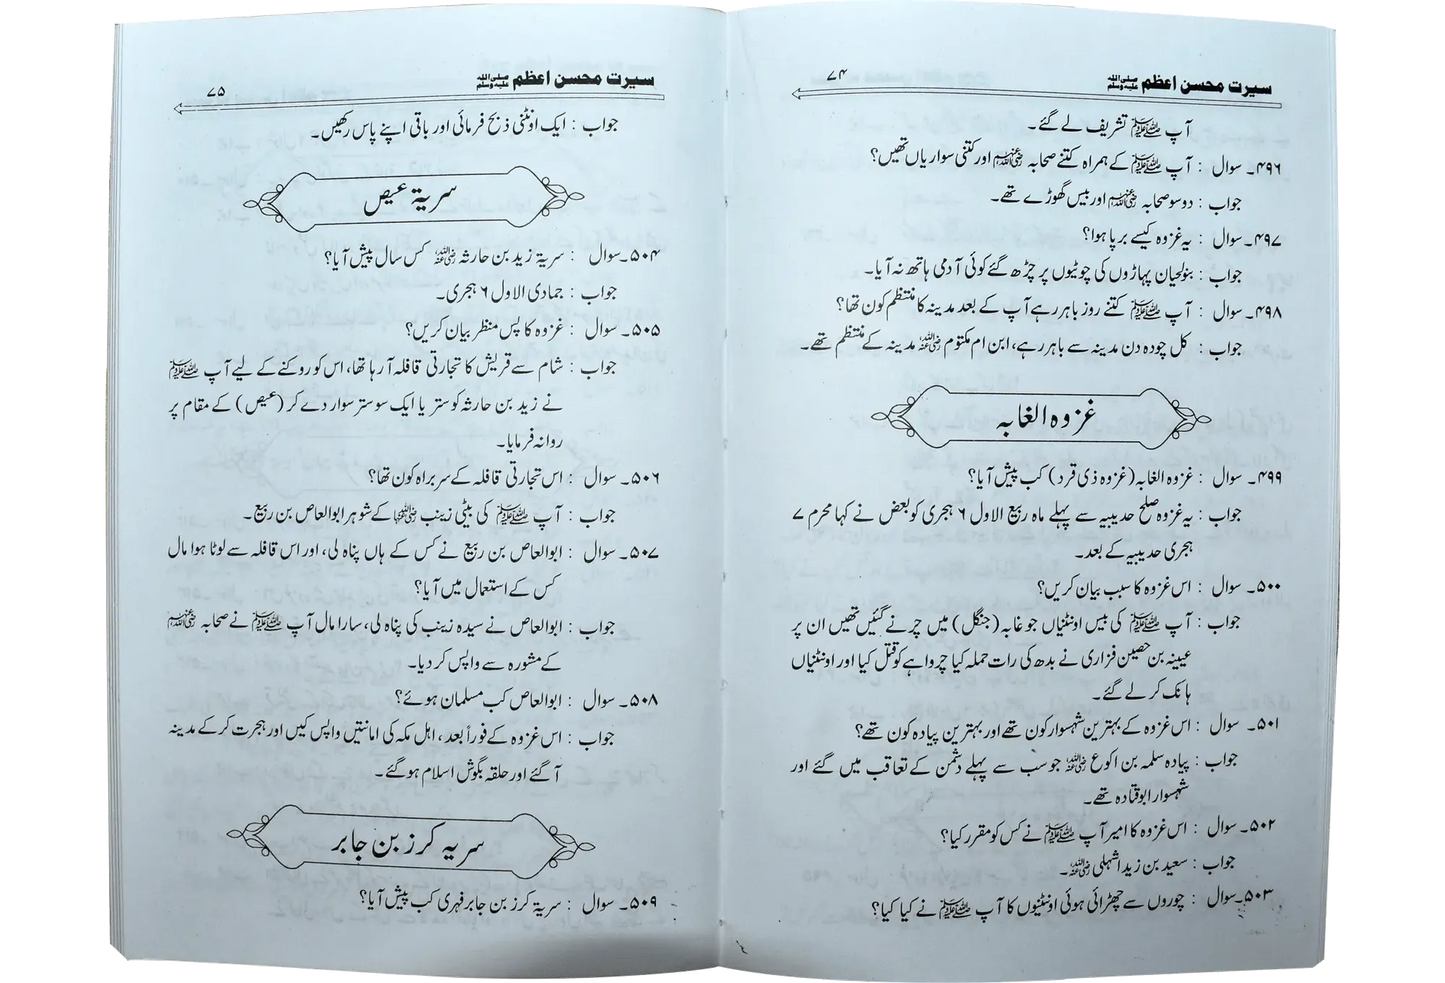 سیرت محسن اعظم صلی اللہ علیہ وسلم ۷۴
آپ ﷺ تشریف لے گئے۔
۴۹۶۔ سوال : آپ ﷺ کے ہمراہ کتنے صحابہ رضی اللہ عنہم اور کتنی سواریاں تھیں؟
جواب : دو سو صحابہ رضی اللہ عنہم اور بیس گھوڑے تھے۔
۴۹۷۔ سوال : یہ غزوہ کیسے برپا ہوا؟
جواب : بنولحیان پہاڑوں کی چوٹیوں پر چڑھ گئے کوئی آدمی ہاتھ نہ آیا۔
۴۹۸۔ سوال : آپ ﷺ کتنے روز باہر رہے آپ کے بعد مدینہ کا منتظم کون تھا؟
جواب : کل چودہ دن مدینہ سے باہر رہے، ابن ام مکتوم رضی اللہ عنہ مدینہ کے منتظم تھے۔
غزوہ الغابہ
۴۹۹۔ سوال : غزوہ الغابہ (غزوہ ذی قرد) کب پیش آیا؟
جواب : یہ غزوہ صلح حدیبیہ سے پہلے ماہ ربیع الاول ۶ ہجری کو بعض نے کہا محرم ۷
ہجری حدیبیہ کے بعد۔
۵۰۰۔ سوال : اس غزوہ کا سبب بیان کریں؟
جواب : آپ ﷺ کی بیس اونٹنیاں جو غابہ (جنگل) میں چرنے گئیں تھیں ان پر
عیینہ بن حصین فزاری نے بدھ کی رات حملہ کیا چرواہے کو قتل کیا اور اونٹنیاں
ہانک کر لے گئے۔
۵۰۱۔ سوال : اس غزوہ کے بہترین شہسوار کون تھے اور بہترین پیادہ کون تھے؟
جواب : پیادہ سلمہ بن اکوع رضی اللہ عنہ جو سب سے پہلے دشمن کے تعاقب میں گئے اور
شہسوار ابوقتادہ تھے۔
۵۰۲۔ سوال : اس غزوہ کا امیر آپ ﷺ نے کس کو مقرر کیا؟
جواب : سعید بن زید اشہلی رضی اللہ عنہ۔
۵۰۳۔ سوال : چوروں سے چھڑائی ہوئی اونٹنیوں کا آپ ﷺ نے کیا کیا؟
سیرت محسن اعظم صلی اللہ علیہ وسلم ۷۵
جواب : ایک اونٹنی ذبح فرمائی اور باقی اپنے پاس رکھیں۔
سریۃ عیص
۵۰۴۔ سوال : سریۃ زید بن حارثہ رضی اللہ عنہ کس سال پیش آیا؟
جواب : جمادی الاول ۶ ہجری۔
۵۰۵۔ سوال : غزوہ کا پس منظر بیان کریں؟
جواب : شام سے قریش کا تجارتی قافلہ آ رہا تھا، اس کو روکنے کے لیے آپ ﷺ
نے زید بن حارثہ کو ستر یا ایک سو ستر سوار دے کر (عیص) کے مقام پر
روانہ فرمایا۔
۵۰۶۔ سوال : اس تجارتی قافلہ کے سربراہ کون تھا؟
جواب : آپ ﷺ کی بیٹی زینب رضی اللہ عنہا کے شوہر ابوالعاص بن ربیع۔
۵۰۷۔ سوال : ابوالعاص بن ربیع نے کس کے ہاں پناہ لی، اور اس قافلہ سے لوٹا ہوا مال
کس کے استعمال میں آیا؟
جواب : ابوالعاص نے سیدہ زینب کی پناہ لی، سارا مال آپ ﷺ نے صحابہ رضی اللہ عنہم
کے مشورہ سے واپس کر دیا۔
۵۰۸۔ سوال : ابوالعاص کب مسلمان ہوئے؟
جواب : اس غزوہ کے فوراً بعد، اہل مکہ کی امانتیں واپس کیں اور ہجرت کر کے مدینہ
آ گئے اور حلقہ بگوش اسلام ہو گئے۔
سریہ کرز بن جابر
۵۰۹۔ سوال : سریۃ کرز بن جابر فہری کب پیش آیا؟